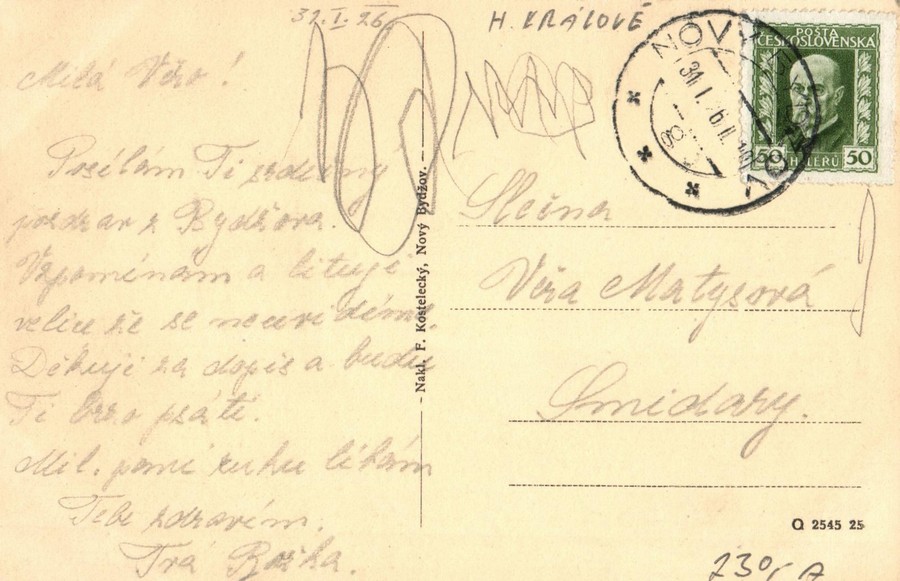 31.I.26
H. KRÁLOVÉ
Milá Věro!
Posílám Ti srdečný
pozdrav z Bydžova.
Vzpomínám a lituji
velice že se neuvidíme.
Děkuji za dopis a budu
Ti brzo psáti.
Mil. paní ruku líbám
Tebe zdravím.
Tvá Božka.
Nakl. F. Kostelecký, Nový Bydžov.
NOVÝ
31.I.26
POŠTA
ČESKOSLOVENSKÁ
50 HALÉŘŮ 50
Slečna
Věra Matysová
Smidary.
Q 2545 25